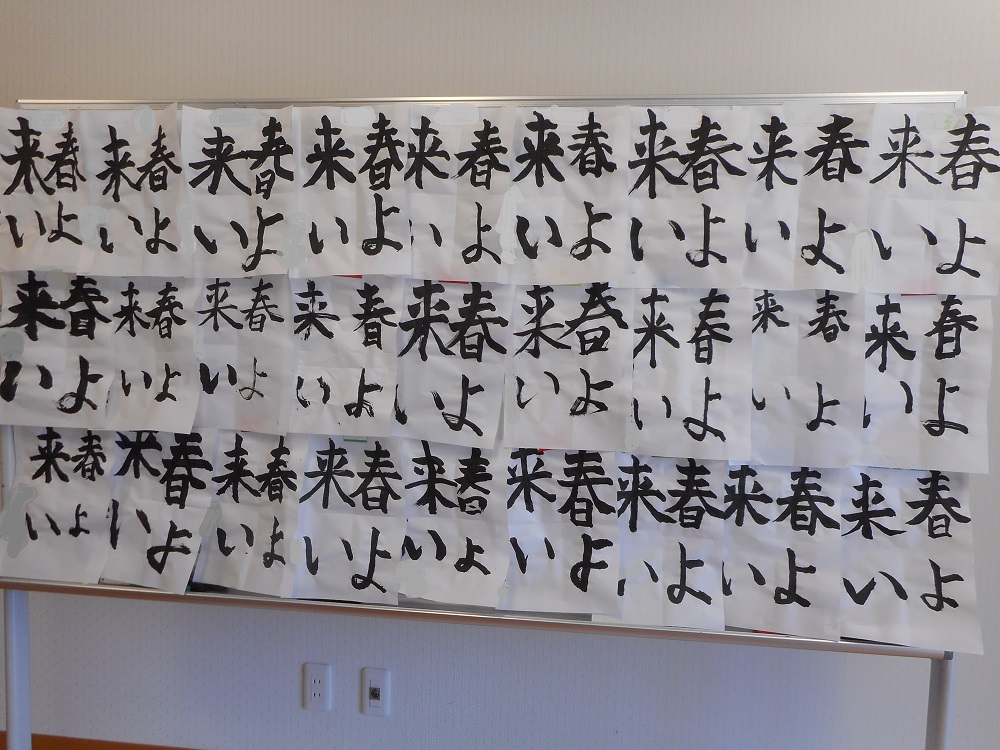 春よ
来い
春よ
来い
春よ
来い
春よ
来い
春よ
来い
春よ
来い
春よ
来い
春よ
来い
春よ
来い
春よ
来い
春よ
来い
春よ
来い
春よ
来い
春よ
来い
春よ
来い
春よ
来い
春よ
来い
春よ
来い
春よ
来い
春よ
来い
春よ
来い
春よ
来い
春よ
来い
春よ
来い
春よ
来い
春よ
来い
春よ
来い